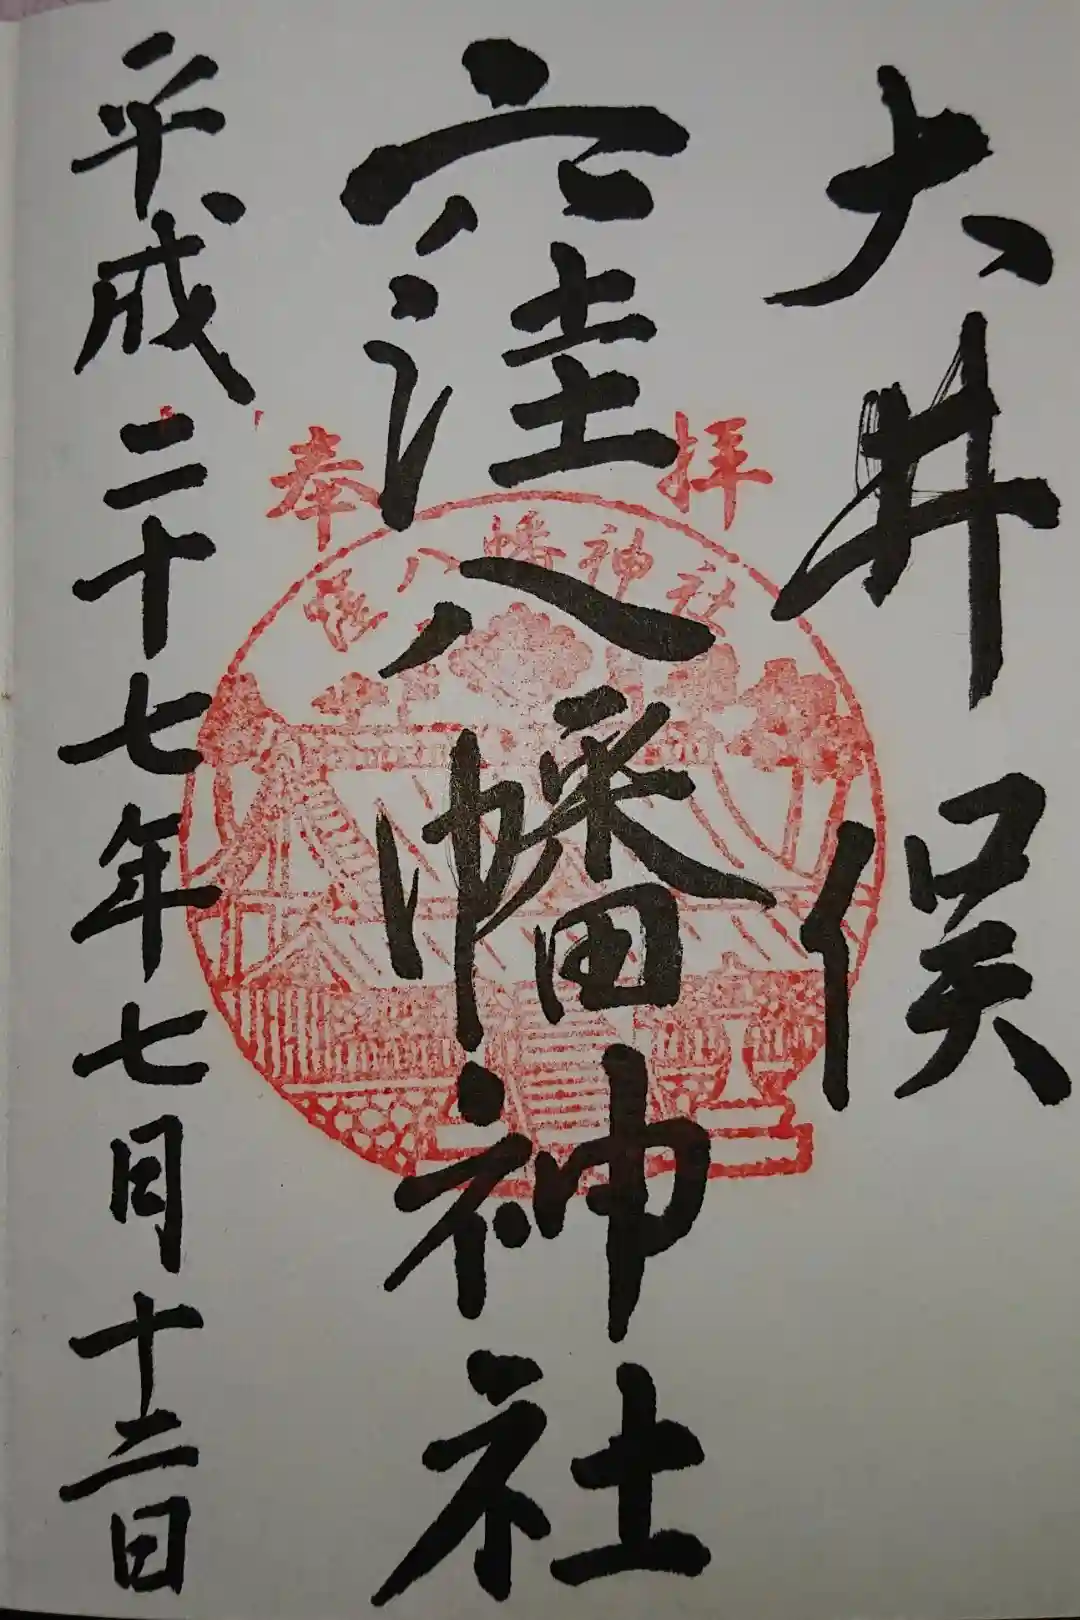 大井俣
窪八幡神社
平成二十七年七月十二日
奉拝
窪八幡神社